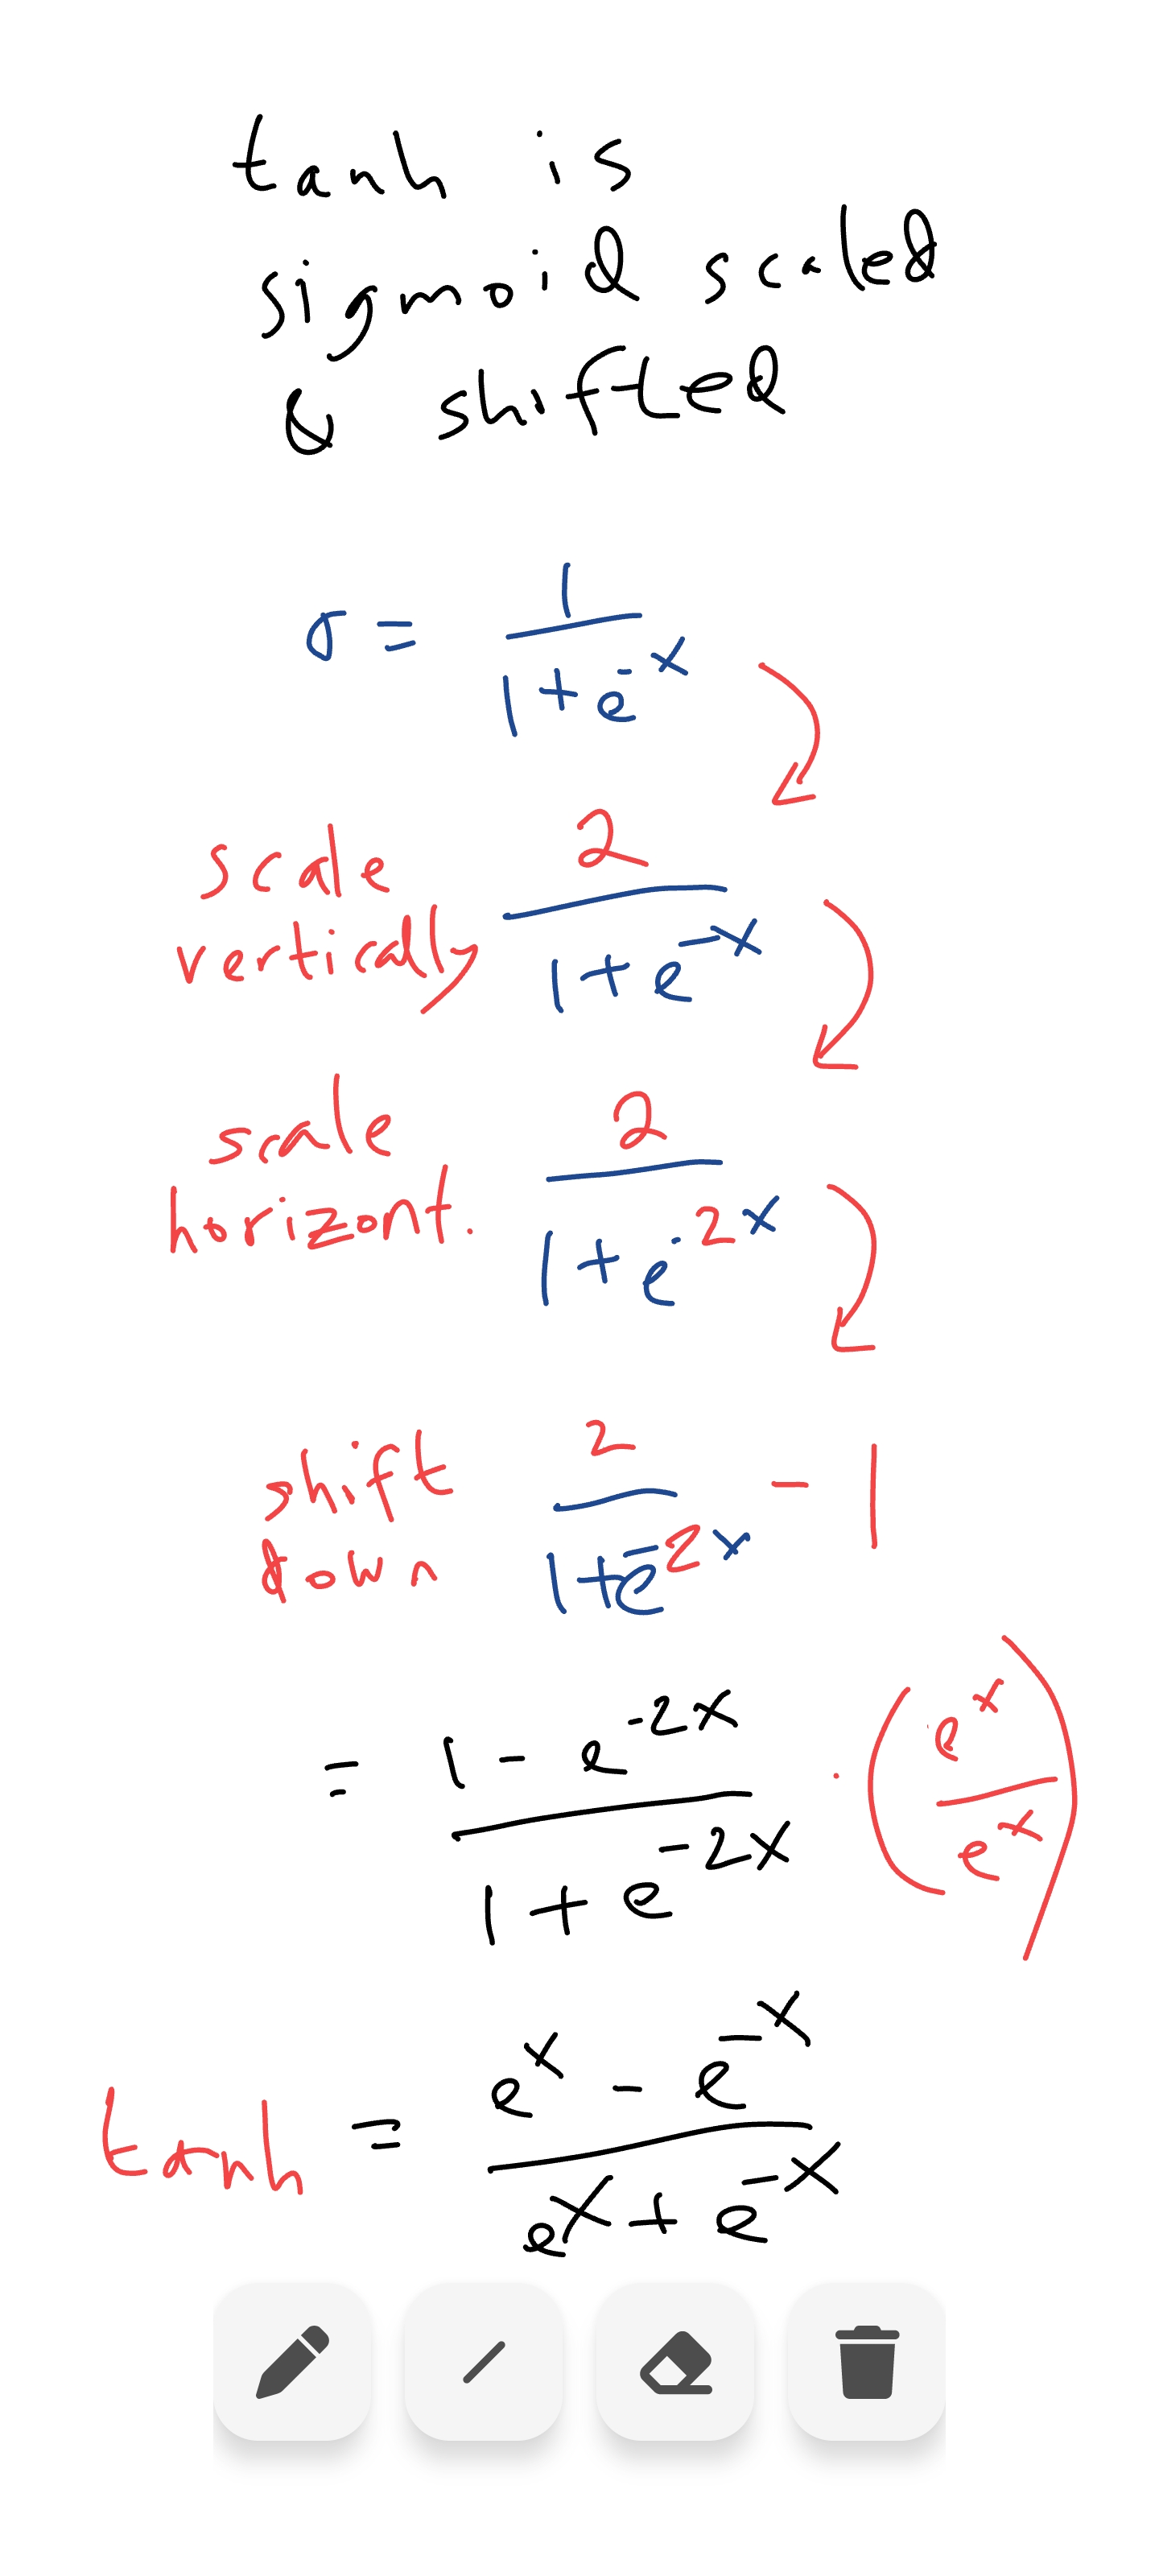 tanh is
sigmoid scaled
& shifted
σ = 1 / (1 + e^-x)
scale vertically 2 / (1 + e^-x)
scale horizont. 2 / (1 + e^-2x)
shift down 2 / (1 + e^-2x) - 1
= (1 - e^-2x) / (1 + e^-2x) · (e^x / e^x)
tanh = (e^x - e^-x) / (e^x + e^-x)